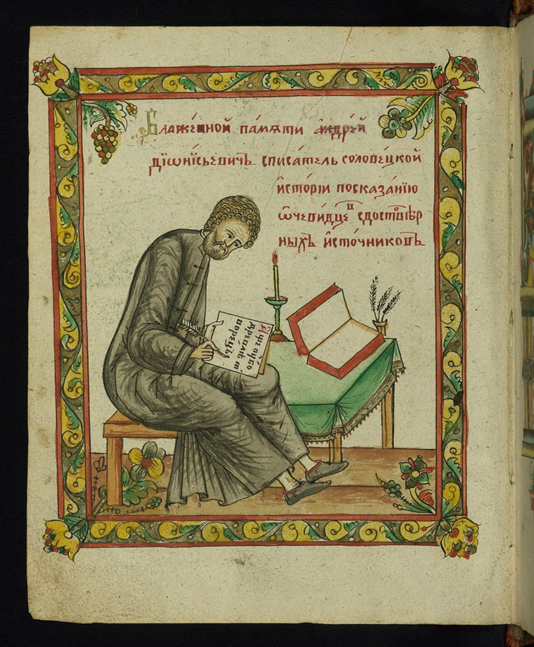 Блаже́нной па́мѧти а҆ндре́й
дїѡни́сьевичь списа́тель солове́цкой
и҆сто́рїи по сказа́нїю
ѻ҆чеви́дцевъ и҆ достовѣ́р
ныхъ и҆сто́чниковъ